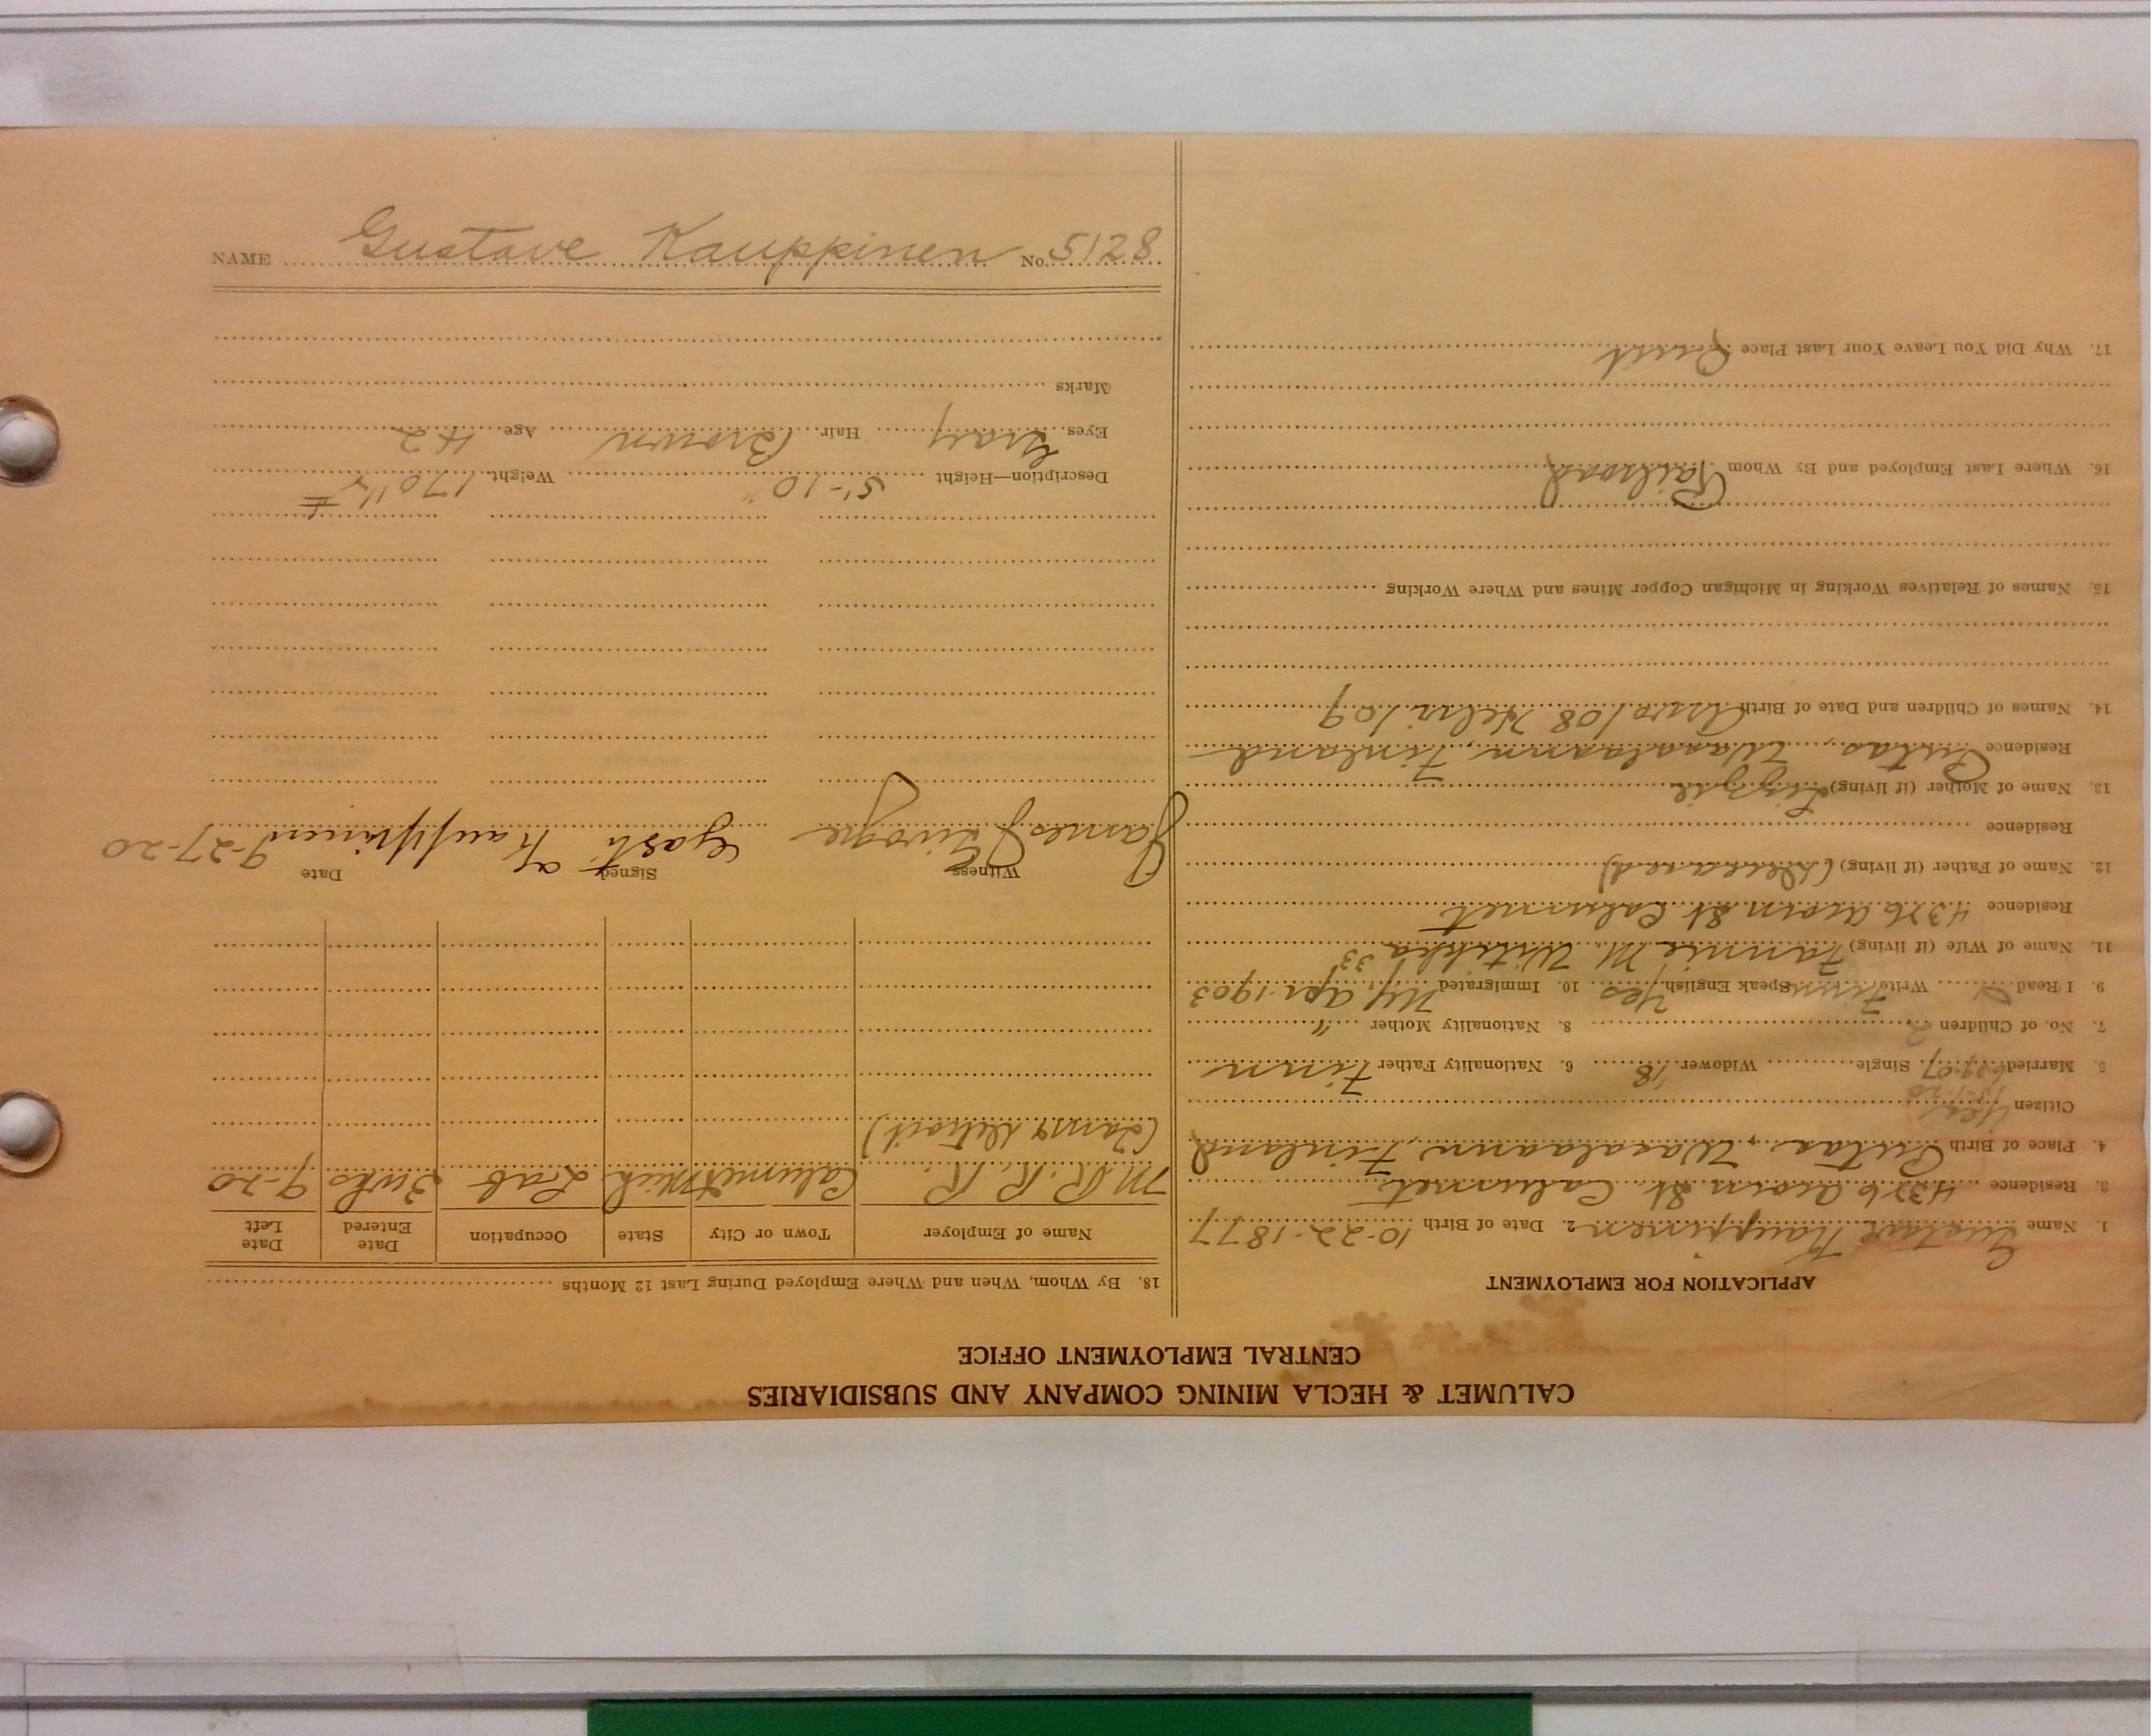 CALUMET & HECLA MINING COMPANY AND SUBSIDIARIES
CENTRAL EMPLOYMENT OFFICE
APPLICATION FOR EMPLOYMENT
1. Name Gustave Kauppinen 2. Date of Birth 10-22-1877
3. Residence 4376 Acorn St. Calumet
4. Place of Birth Wasalaann, Finland
Citizen Yes
5. Married 07 Single Widower 6. Nationality Father Finn
7. No. of Children 2 8. Nationality Mother "
9. I Read Write Finn Speak English Yes 10. Immigrated NY Apr. 1903
11. Name of Wife (if living) Fannie M. 33
Residence 4376 Acorn St. Calumet
12. Name of Father (if living) (Deceased)
Residence
13. Name of Mother (if living) Lizzie
Residence Wasalaann, Finland
14. Names of Children and Date of Birth 08 Helmi 09
15. Names of Relatives Working in Michigan Copper Mines and Where Working
16. Where Last Employed and By Whom Railroad
17. Why Did You Leave Your Last Place Quit
18. By Whom, When and Where Employed During Last 12 Months
Name of Employer Town or City State Occupation Date Entered Date Left
M.R.R.R. Calumet Mich Lab 2wks 9-20
Detroit)
Witness Signed Date
James Kauppinen 9-27-20
Description—Height 5'-10" Weight 170
Eyes Gray Hair Brown Age 42
Marks
NAME Gustave Kauppinen No. 5128